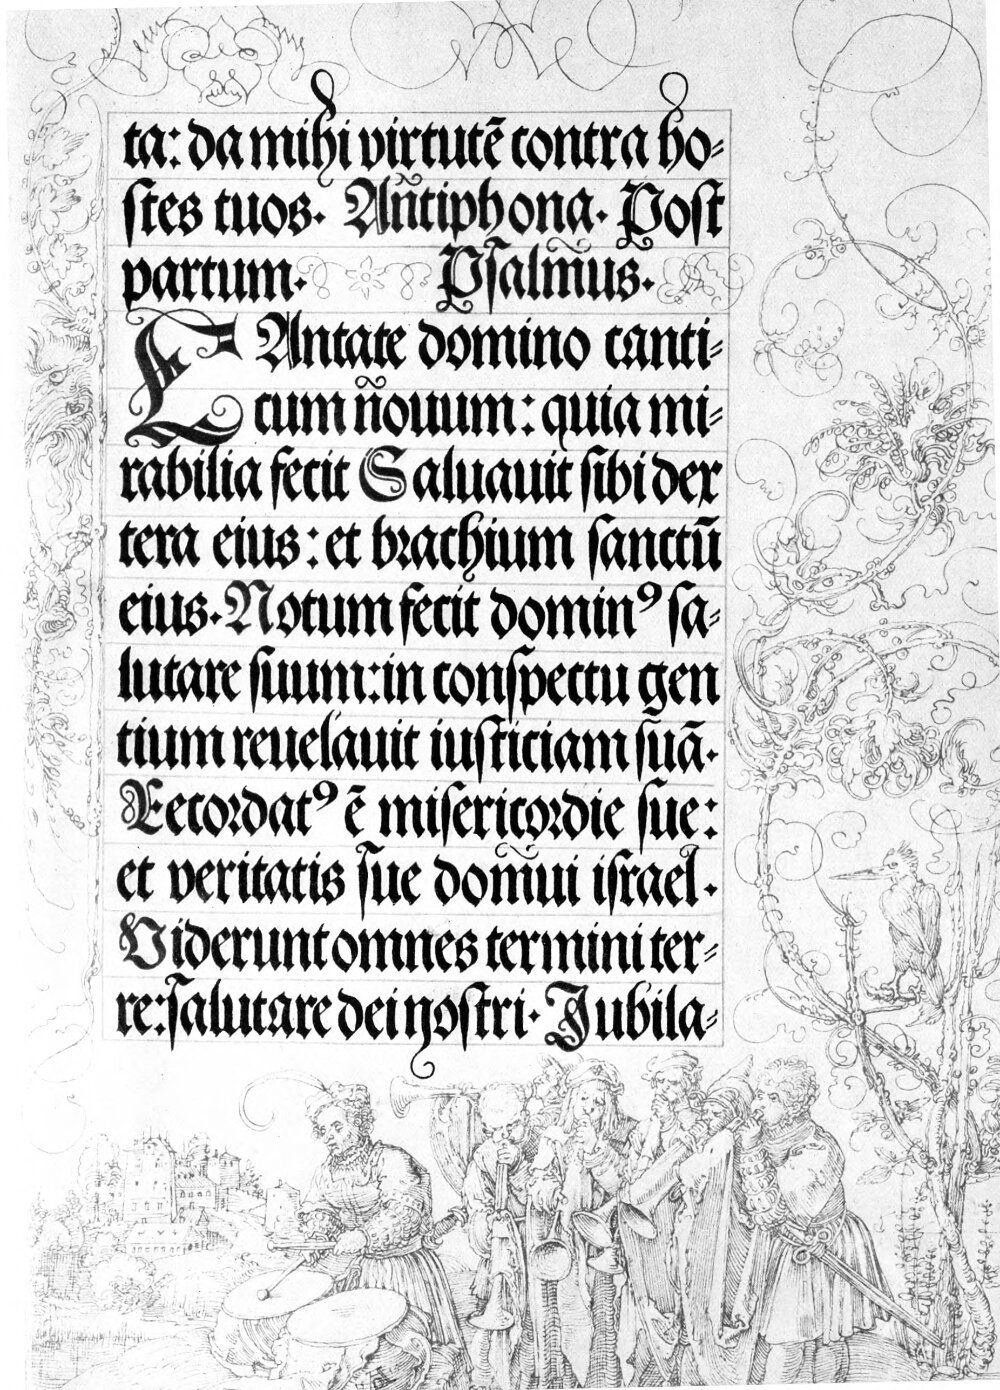 ta: da mihi virtutē contra ho⸗
ſtes tuos. An̄tiphona. Poſt
partum. Pſalm̄us.
CAntate domino canti⸗
cum n̄ouum: quia mi⸗
rabilia fecit Saluauit ſibi dex
tera eius: et brachium ſanctū
eius. Notum fecit dominꝰ ſa⸗
lutare ſuum: in conſpectu gen
tium reuelauit iuſticiam ſuā.
Recordatꝰ ē miſericordie ſue:
et veritatis ſue dom̄ui iſrael.
Viderunt omnes termini ter⸗
re: ſalutare dei noſtri. Jubila⸗